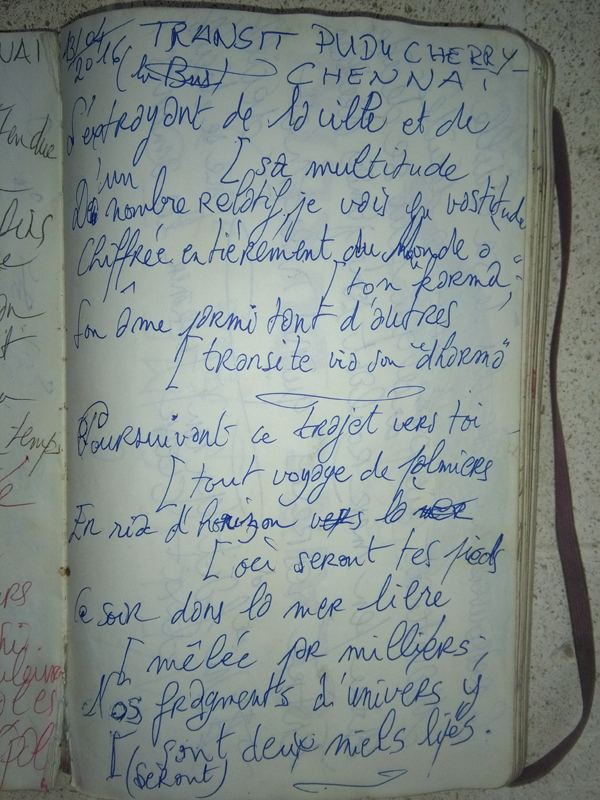 NAI
13/04/2016 TRANSIT PUDUCHERRY-
(le Bus) CHENNAI
S'extrayant de la ville et de
[ sa multitude
D'un nombre relatif, je vois ta vastitude
Chiffrée entièrement du Monde a
[ ton karma ;
Son âme parmi tant d'autres
[ transite via son "dharma"
Poursuivant ce trajet vers toi
[ tout voyage de palmiers
En riz d'horizon vers la mer
[ où seront tes pieds
Ce soir dans la mer libre
[ mêlée par milliers ;
Nos fragments d'univers y
[ sont deux miels liés.
(seront)
temps